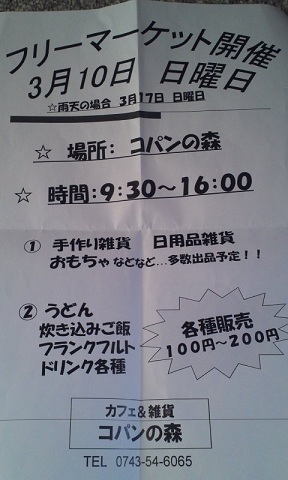 フリーマーケット開催
3月10日 日曜日
☆雨天の場合 3月17日 日曜日
☆ 場所: コパンの森
☆ 時間:9:30～16:00
① 手作り雑貨 日用品雑貨
おもちゃ などなど…多数出品予定!!
② うどん
炊き込みご飯
フランクフルト
ドリンク各種
各種販売
100円～200円
カフェ&雑貨
コパンの森
TEL 0743-54-6065